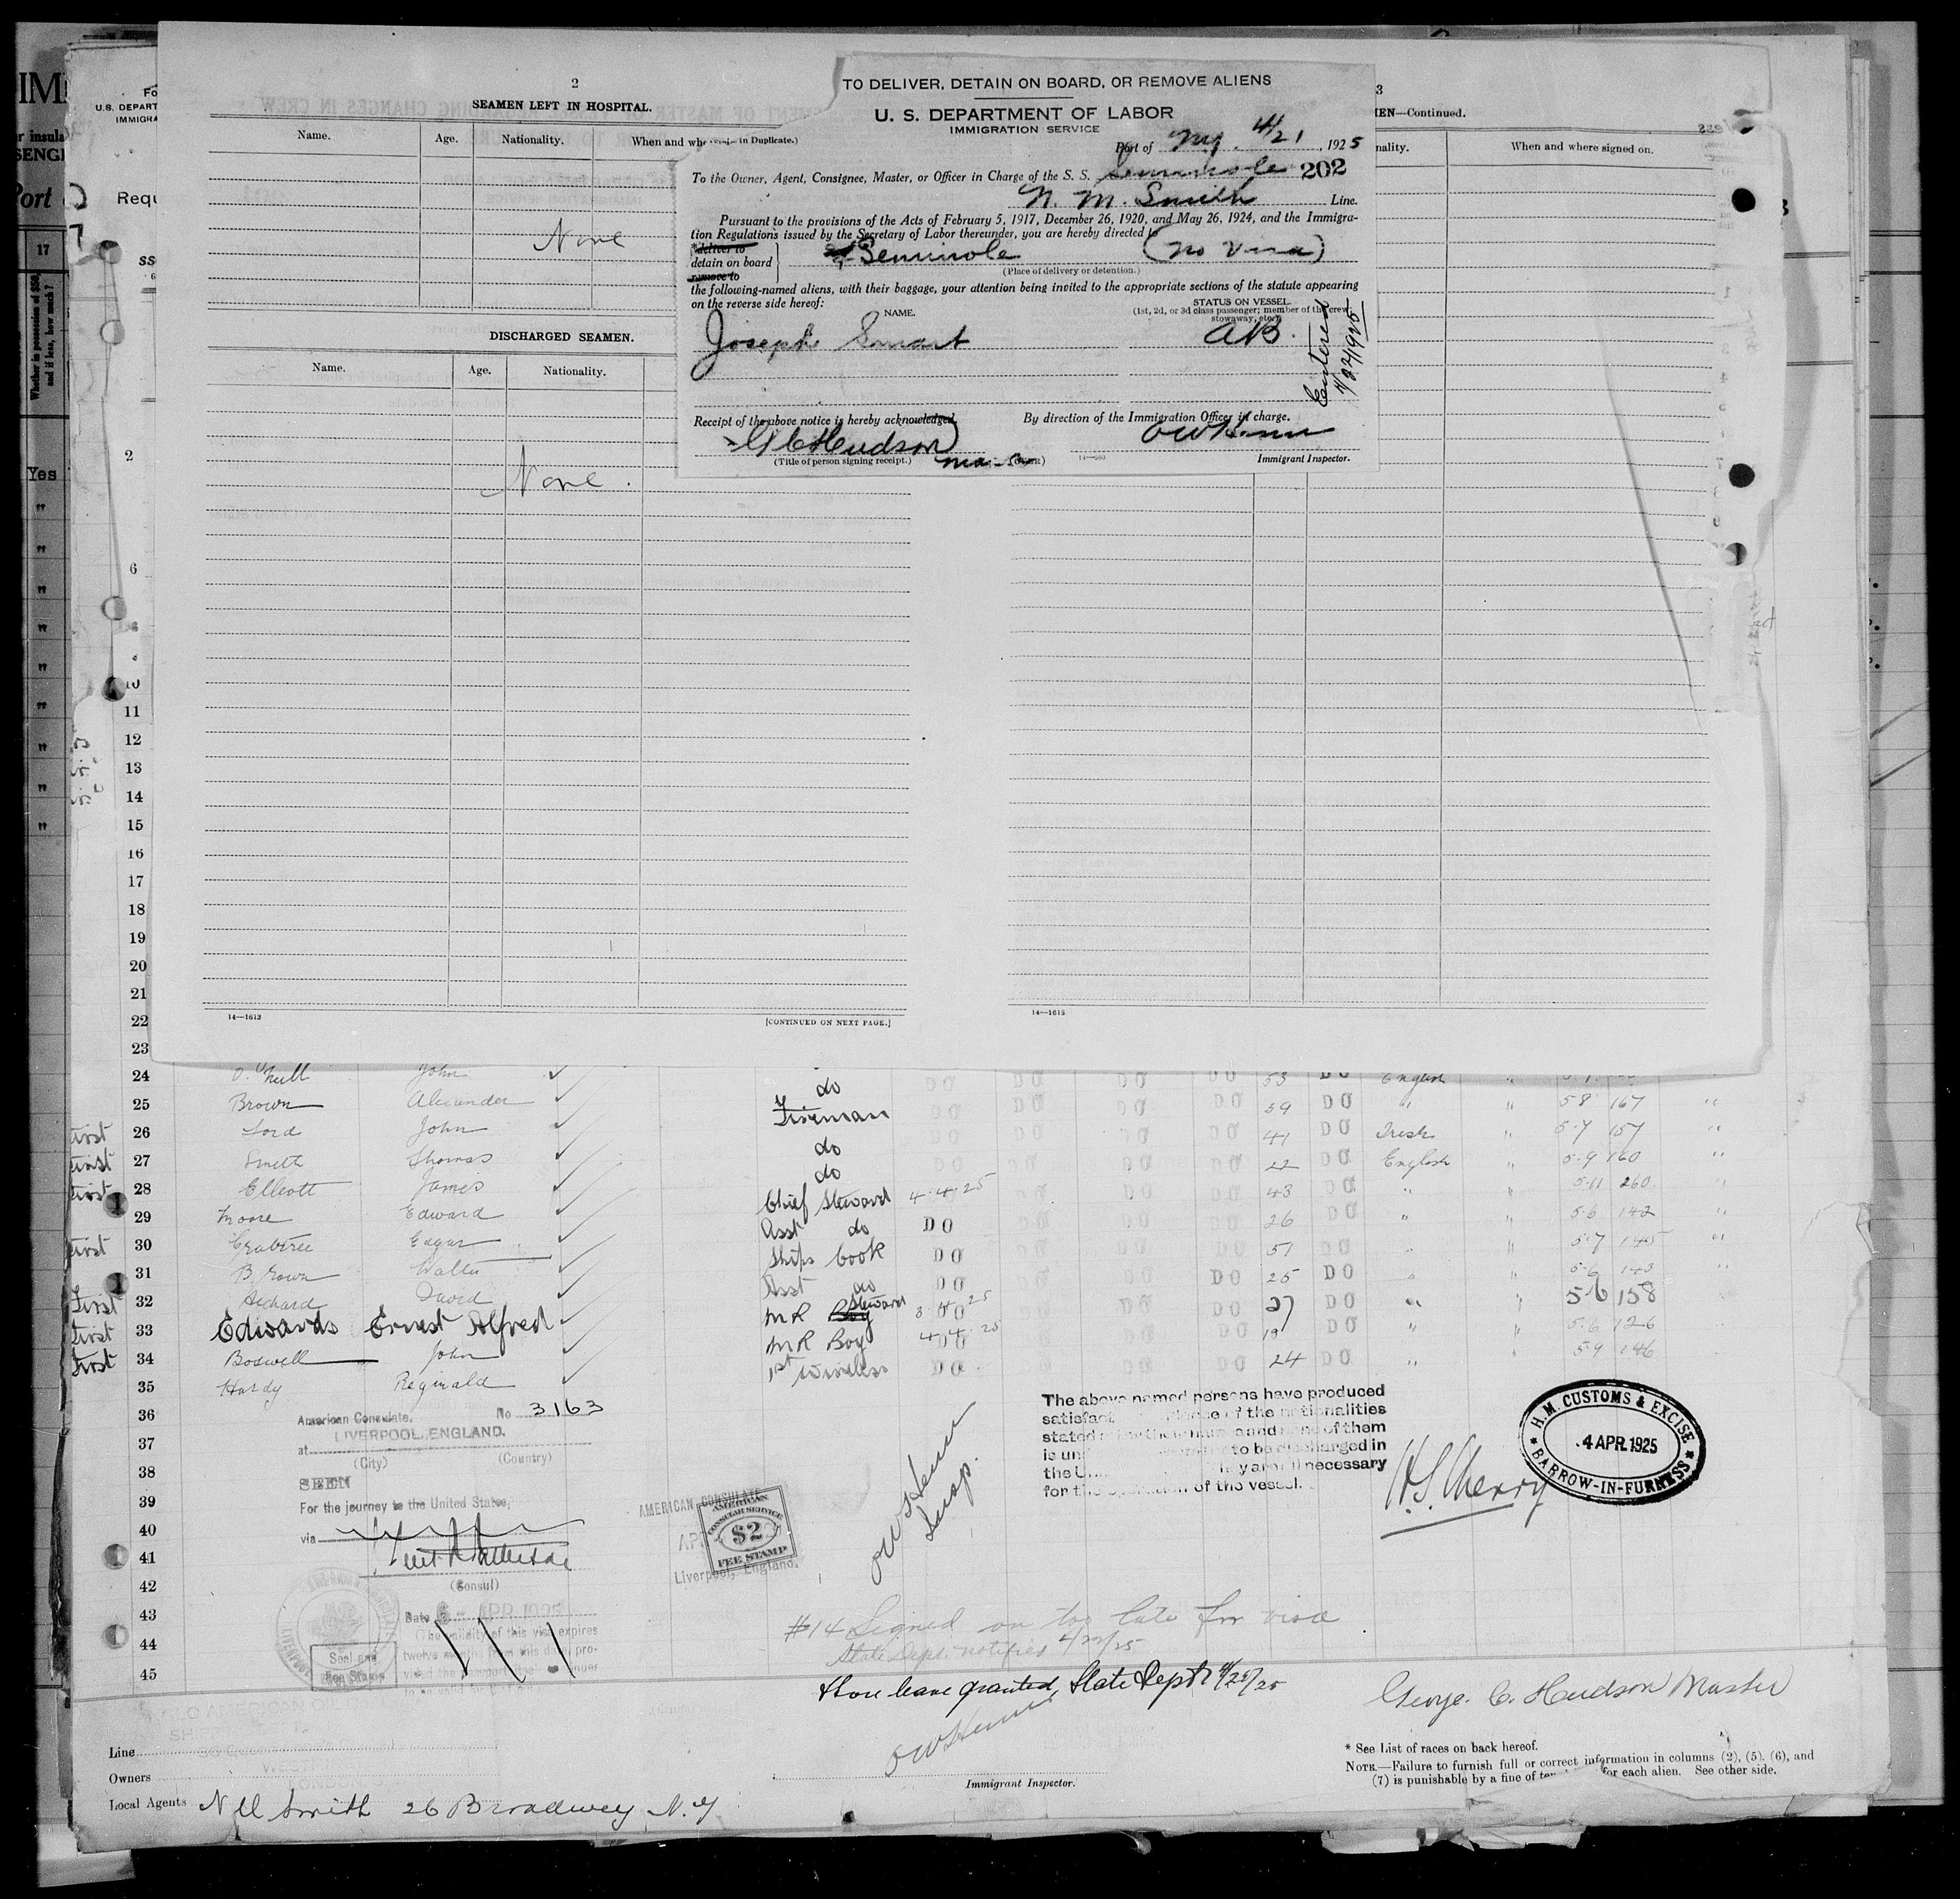 2
SEAMEN LEFT IN HOSPITAL.
Name. Age. Nationality. When and
None
DISCHARGED SEAMEN.
Name. Age. Nationality.
None.
14—1613
[CONTINUED ON NEXT PAGE.]
TO DELIVER, DETAIN ON BOARD, OR REMOVE ALIENS
U. S. DEPARTMENT OF LABOR
IMMIGRATION SERVICE
in Duplicate.)
Port of N.Y. 4/21, 1925
To the Owner, Agent, Consignee, Master, or Officer in Charge of the S. S. Seminole 202
N. M. Smith Line.
Pursuant to the provisions of the Acts of February 5, 1917, December 26, 1920, and May 26, 1924, and the Immigra-
tion Regulations issued by the Secretary of Labor thereunder, you are hereby directed to
*deliver to
detain on board
remove to
Seminole (no visa)
(Place of delivery or detention.)
the following-named aliens, with their baggage, your attention being invited to the appropriate sections of the statute appearing
on the reverse side hereof:
NAME.
STATUS ON VESSEL.
(1st, 2d, or 3d class passenger; member of the crew,
stowaway, etc.)
Joseph Smart AB.
Entered
Receipt of the above notice is hereby acknowledged.
By direction of the Immigration Officer in charge.
G C Hudson
(Title of person signing receipt.)
(OVER)
Immigrant Inspector.
3
MEN—Continued.
When and where signed on.
14—1613
U.S. DEPART
IMMIGRA
Requ
17
Whether in possession of $50, and if less, how much?
Yes
2
6
10
11
12
13
14
15
16
17
18
19
20
21
22
23
24 O'Neill John do DO DO DO DO 53 DO English
25 Brown Alexander Fireman DO DO DO DO 39 DO " " 5 8 167 "
First 26 Lord John do DO DO DO DO 41 DO Irish " 5.7 157 "
First 27 Smith Thomas do DO DO DO DO 22 DO English " 5.9 160 "
First 28 Elliott James Chief Steward 4.4.25 DO DO DO 43 DO " " 5.11 260 "
29 Moore Edward Asst do DO DO DO DO 26 DO " " 5.6 142 "
First 30 Crabtree Edgar Ships Cook DO DO DO DO 51 DO " " 5.7 145 "
31 Brown Walter Asst do DO DO DO DO 25 DO " " 5.6 143
First 32 David MR Boy Steward DO DO DO 27 DO " " 5.6 158
First 33 Edwards Ernest Alfred MR Boy DO DO DO 19 DO " " 5.6 126
First 34 Boswell John 1st Wireless DO DO DO DO 24 DO " 5.9 146
35 Hardy Reginald
36
37
38
39
40
41
42
43
44
45
American Consulate, No 3163
at LIVERPOOL, ENGLAND.
(City) (Country)
SEEN
For the journey to the United States,
via
(Consul)
Date APR 1925
(The validity of this visa expires
twelve months from this date, pro-
Seal and
Fee Stamp
AMERICAN CONSULATE
AMERICAN
CONSULAR SERVICE
$2
FEE STAMP
Liverpool, England.
Insp.
The above named persons have produced
satisfact of the nationalities
stated and none of them
is to be discharged in
the U necessary
for the operation of the vessel.
H.S. Cherry
H.M. CUSTOMS & EXCISE
4 APR 1925
BARROW-IN-FURNESS
#14 Signed on too late for visa
State Dept. notified 4/22/25
Shore leave granted, State Dept 4/25/25
George. C. Hudson Master
Immigrant Inspector.
Line
Owners
Local Agents N M Smith 26 Broadway N.Y
* See List of races on back hereof.
NOTE.—Failure to furnish full or correct information in columns (2), (5), (6), and
(7) is punishable by a fine of for each alien. See other side.